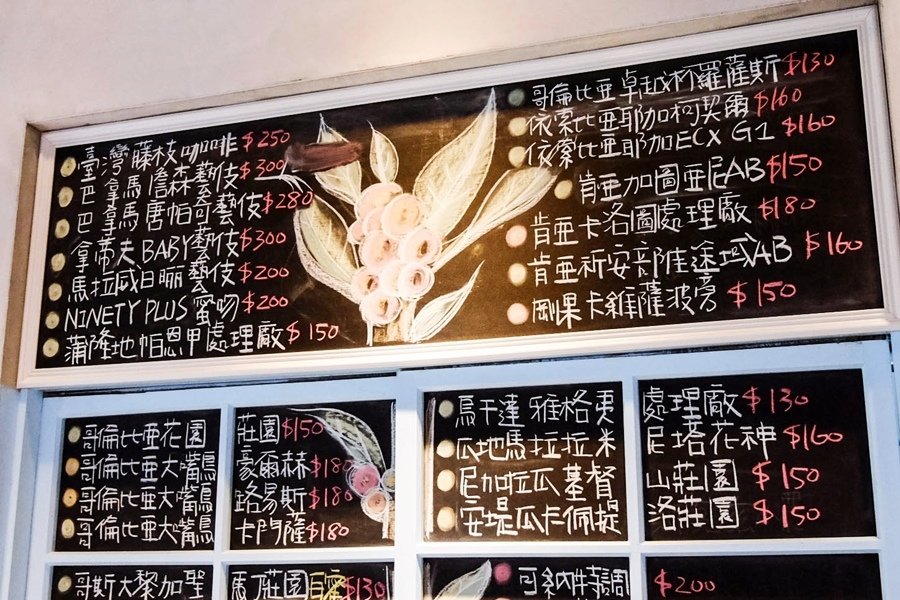 臺灣藤枝咖啡 $250
巴拿馬詹森藝伎 $300
巴拿馬唐帕可藝伎 $280
拿帝夫BABY藝伎 $300
馬拉威日晒藝伎 $200
NINETY PLUS 蜜吻 $200
蒲隆地帕恩甲處理廠 $150
哥倫比亞卓越杯羅薩斯 $130
依索比亞耶加柯契爾 $160
依索比亞耶加ECX G1 $160
肯亞加圖亞尼AB $150
肯亞卡洛圖處理廠 $180
肯亞祈安部佳途域AB $160
剛果卡維薩波旁 $150
哥倫比亞花園 莊園 $150
哥倫比亞大嘴鳥 豪爾赫 $180
哥倫比亞大嘴鳥 路易斯 $180
哥倫比亞大嘴鳥 卡門薩 $180
烏干達 雅格東 處理廠 $130
瓜地馬拉拉米 尼塔花神 $160
尼加拉瓜基督 山莊園 $150
安堤瓜卡佩提 洛莊園 $150
哥斯大黎加聖 馬丁莊園白蜜 $130
$200